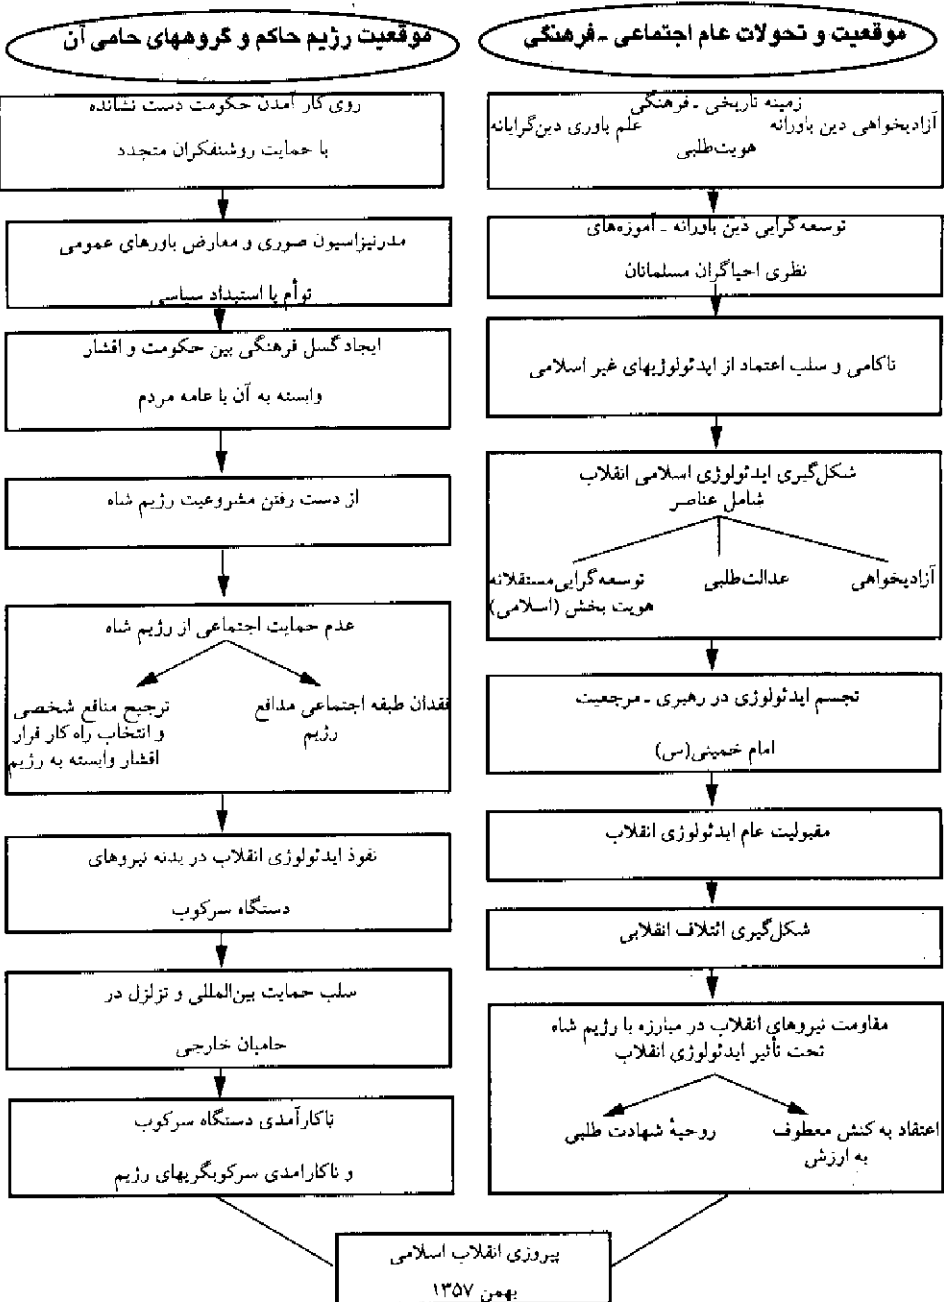 موقعیت و تحولات عام اجتماعی ـ فرهنگی
زمینه تاریخی ـ فرهنگی
آزادیخواهی دین باورانه علم باوری دین‌گرایانه
هویت‌طلبی
توسعه‌گرایی دین باورانه ـ آموزه‌های
نظری احیاگران مسلمانان
ناکامی و سلب اعتماد از ایدئولوژیهای غیر اسلامی
شکل‌گیری ایدئولوژی اسلامی انقلاب
شامل عناصر
آزادیخواهی
عدالت‌طلبی
توسعه‌گرایی مستقلانه
هویت بخش (اسلامی)
تجسم ایدئولوژی در رهبری ـ مرجعیت
امام خمینی(س)
مقبولیت عام ایدئولوژی انقلاب
شکل‌گیری ائتلاف انقلابی
مقاومت نیروهای انقلاب در مبارزه با رژیم شاه
تحت تأثیر ایدئولوژی انقلاب
اعتقاد به کنش معطوف
به ارزش
روحیهٔ شهادت طلبی
موقعیت رژیم حاکم و گروههای حامی آن
روی کار آمدن حکومت دست نشانده
با حمایت روشنفکران متجدد
مدرنیزاسیون صوری و معارض باورهای عمومی
توأم با استبداد سیاسی
ایجاد گسل فرهنگی بین حکومت و اقشار
وابسته به آن با عامه مردم
از دست رفتن مشروعیت رژیم شاه
عدم حمایت اجتماعی از رژیم شاه
فقدان طبقه اجتماعی مدافع
رژیم
ترجیح منافع شخصی
و انتخاب راه کار فرار
اقشار وابسته به رژیم
نفوذ ایدئولوژی انقلاب در بدنه نیروهای
دستگاه سرکوب
سلب حمایت بین‌المللی و تزلزل در
حامیان خارجی
ناکارآمدی دستگاه سرکوب
و ناکارامدی سرکوبگریهای رژیم
پیروزی انقلاب اسلامی
بهمن ۱۳۵۷